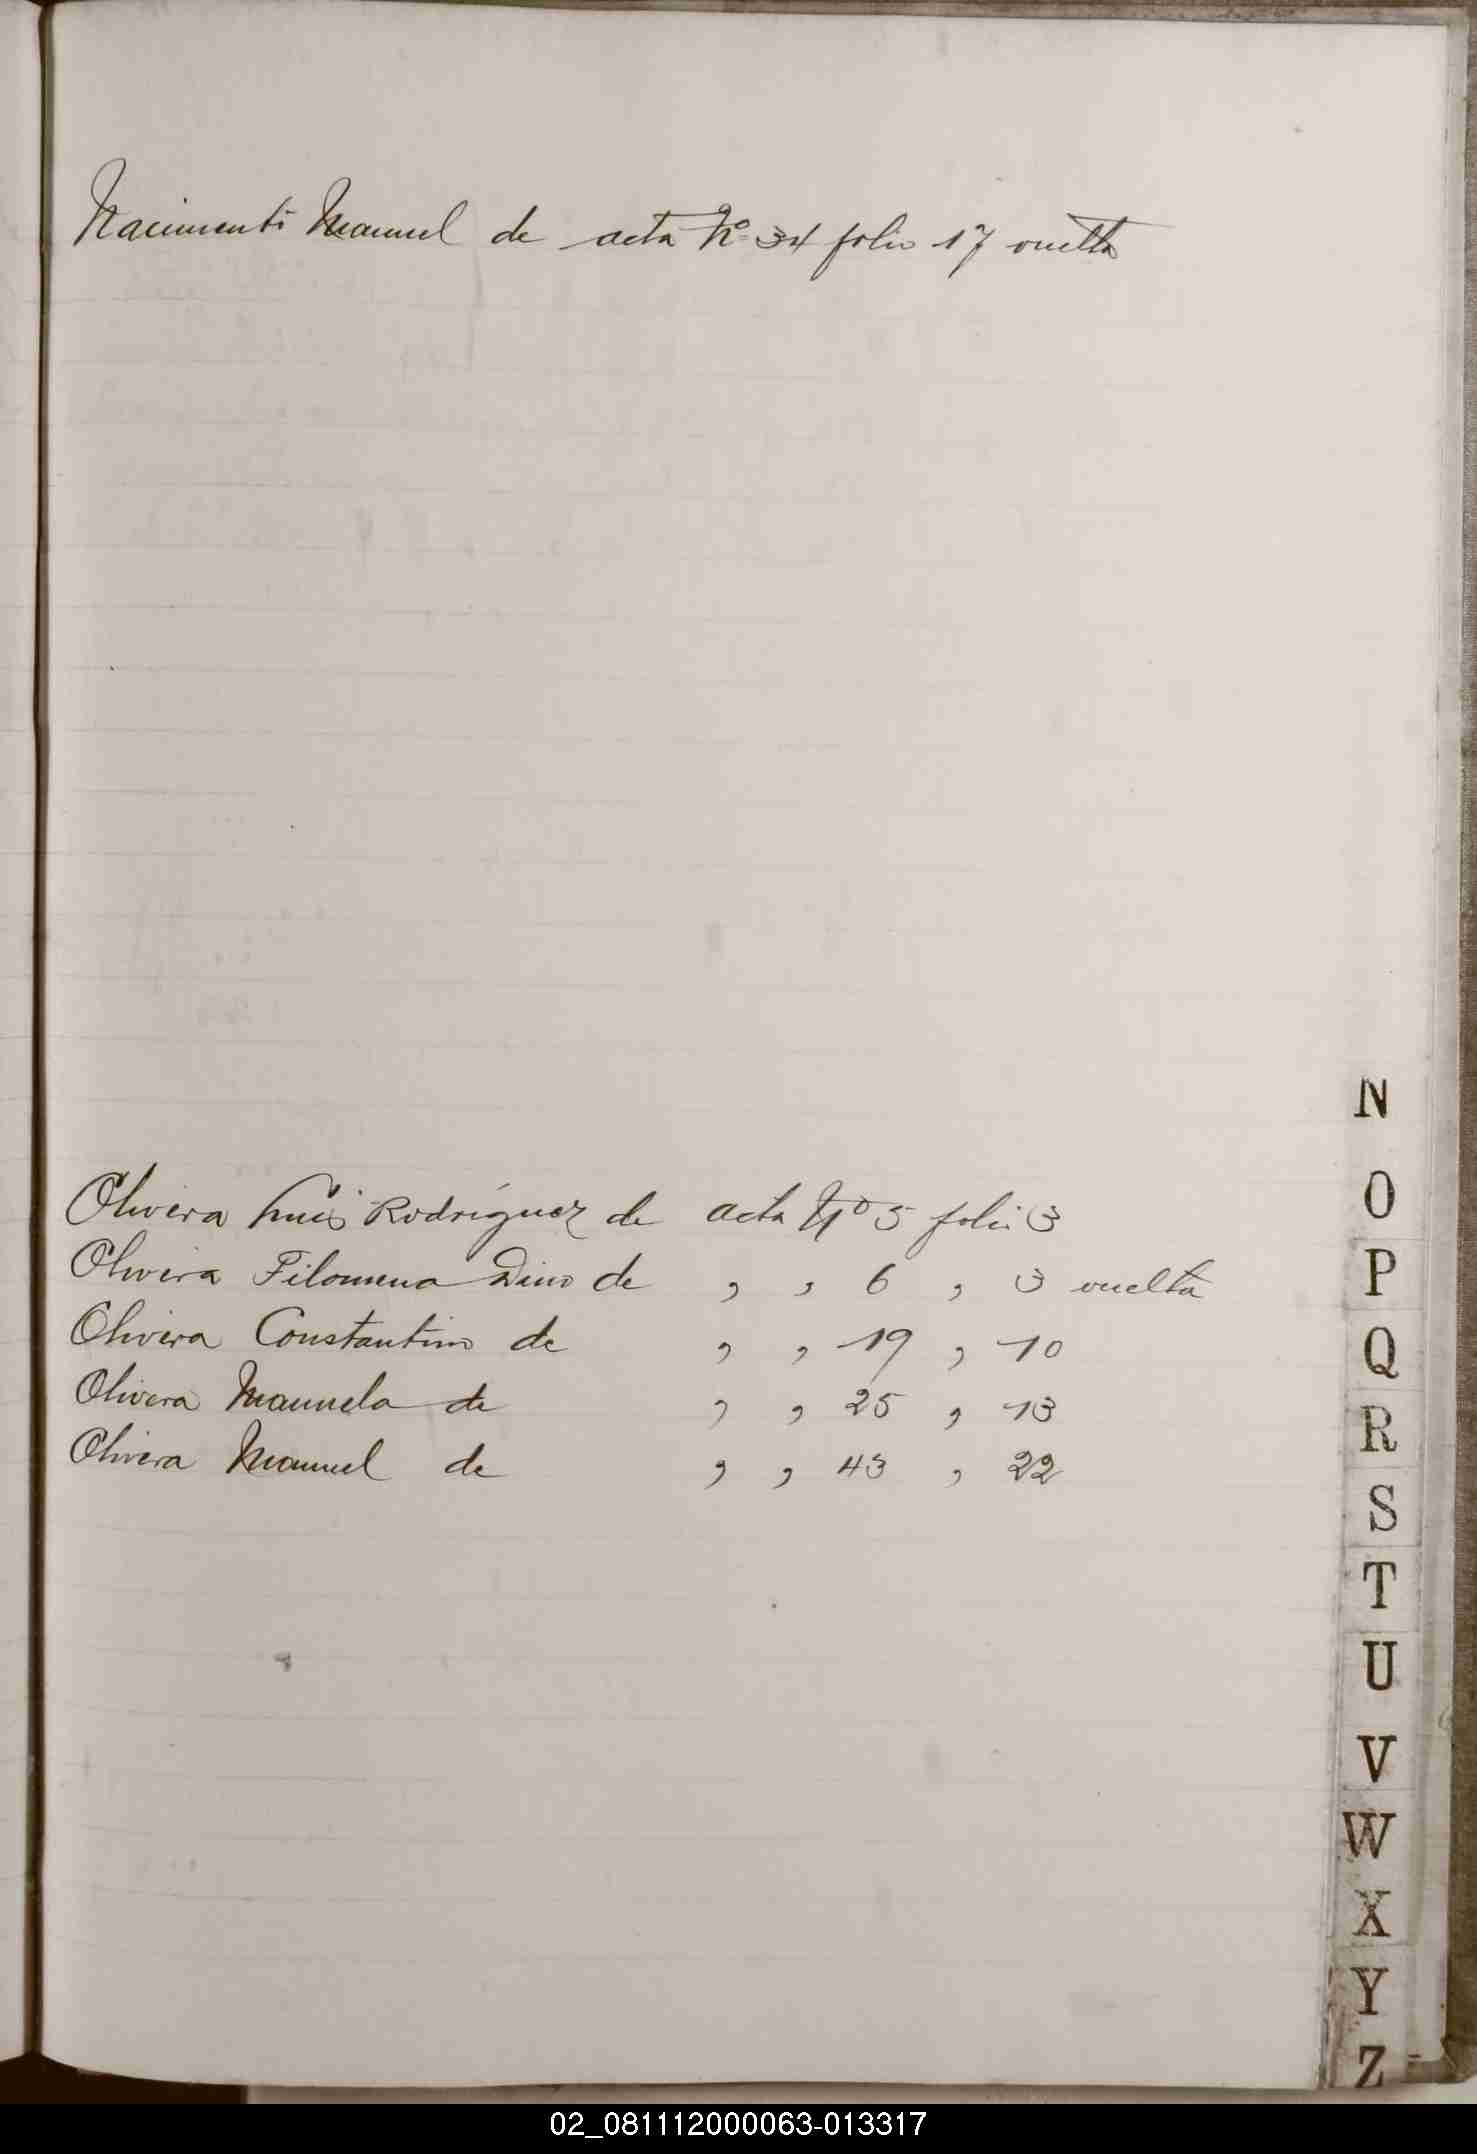 Nacimento Manuel de acta Nº 34 folio 17 vuelta
Olivera Luis Rodriguez de acta Nº 5 folio 3
Olivera Filomena Dino de , , 6 , 3 vuelta
Olivera Constantino de , , 19 , 10
Olivera Manuela de , , 25 , 13
Olivera Manuel de , , 43 , 22
N
O
P
Q
R
S
T
U
V
W
X
Y
Z
02_081112000063-013317